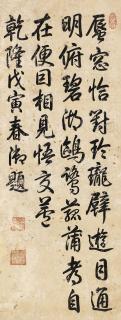 蜃窓恰對玲瓏壁遊目通
明俯碧湖鷗鷺菰蒲考自
在便因相見悟交蘆
乾隆戊寅春御題